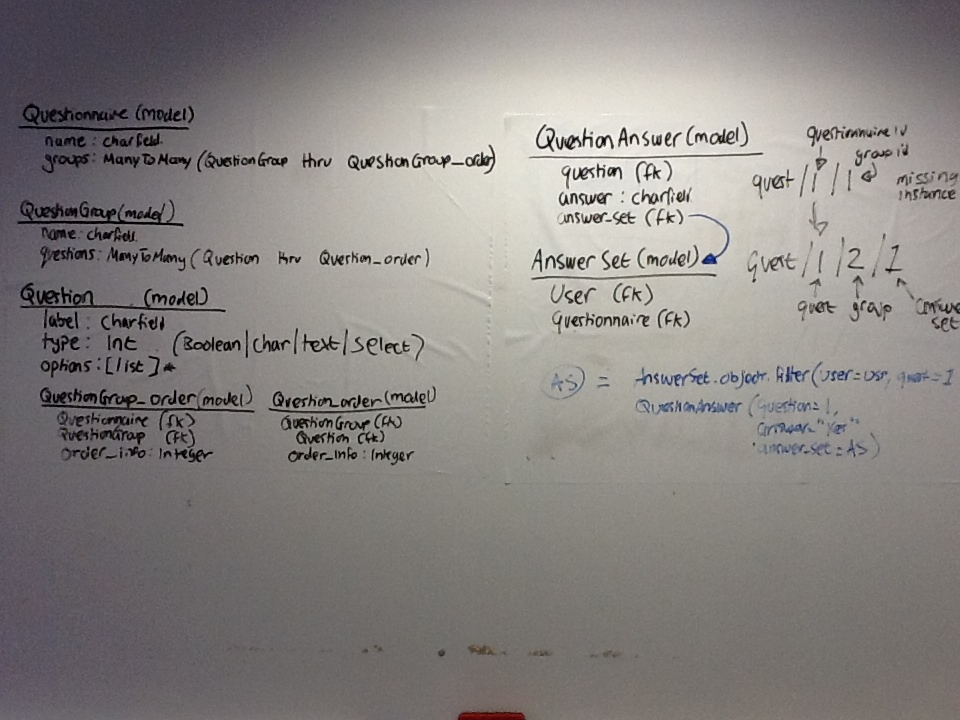 Questionnaire (model)
name : charfield
groups: ManyToMany (QuestionGroup thru QuestionGroup_order)
QuestionGroup (model)
name: charfield
questions: ManyToMany (Question thru Question_order)
Question (model)
label : Charfield
type: Int (Boolean|char|text|select)
options: [list]*
QuestionGroup_order(model)
Questionnaire (fk)
QuestionGroup (fk)
order_info: Integer
Question_order(model)
QuestionGroup (fk)
Question (fk)
order_info: Integer
QuestionAnswer (model)
question (fk)
answer : charfield
answer-set (fk)
Answer Set (model)
User (fk)
Questionnaire (fk)
questionnaire id
group id
quest /1 /1
missing
instance
quest /1 /2 /1
quest group
set
AS = AnswerSet.object.filter(user=usr, quest=1
QuestionAnswer (question=1,
answer="Yes"
answer-set=AS)